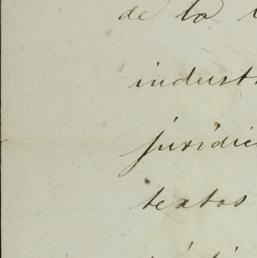 de la
indust
juridic
textos